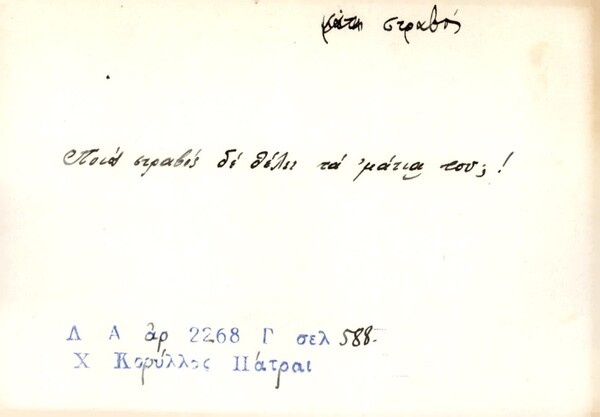 μάτι στραβός
Ποιός στραβός δέ θέλει τά 'μάτια του; !
Λ Α ἀρ 2268 Γ σελ 588
Χ Κορύλλος Πάτραι